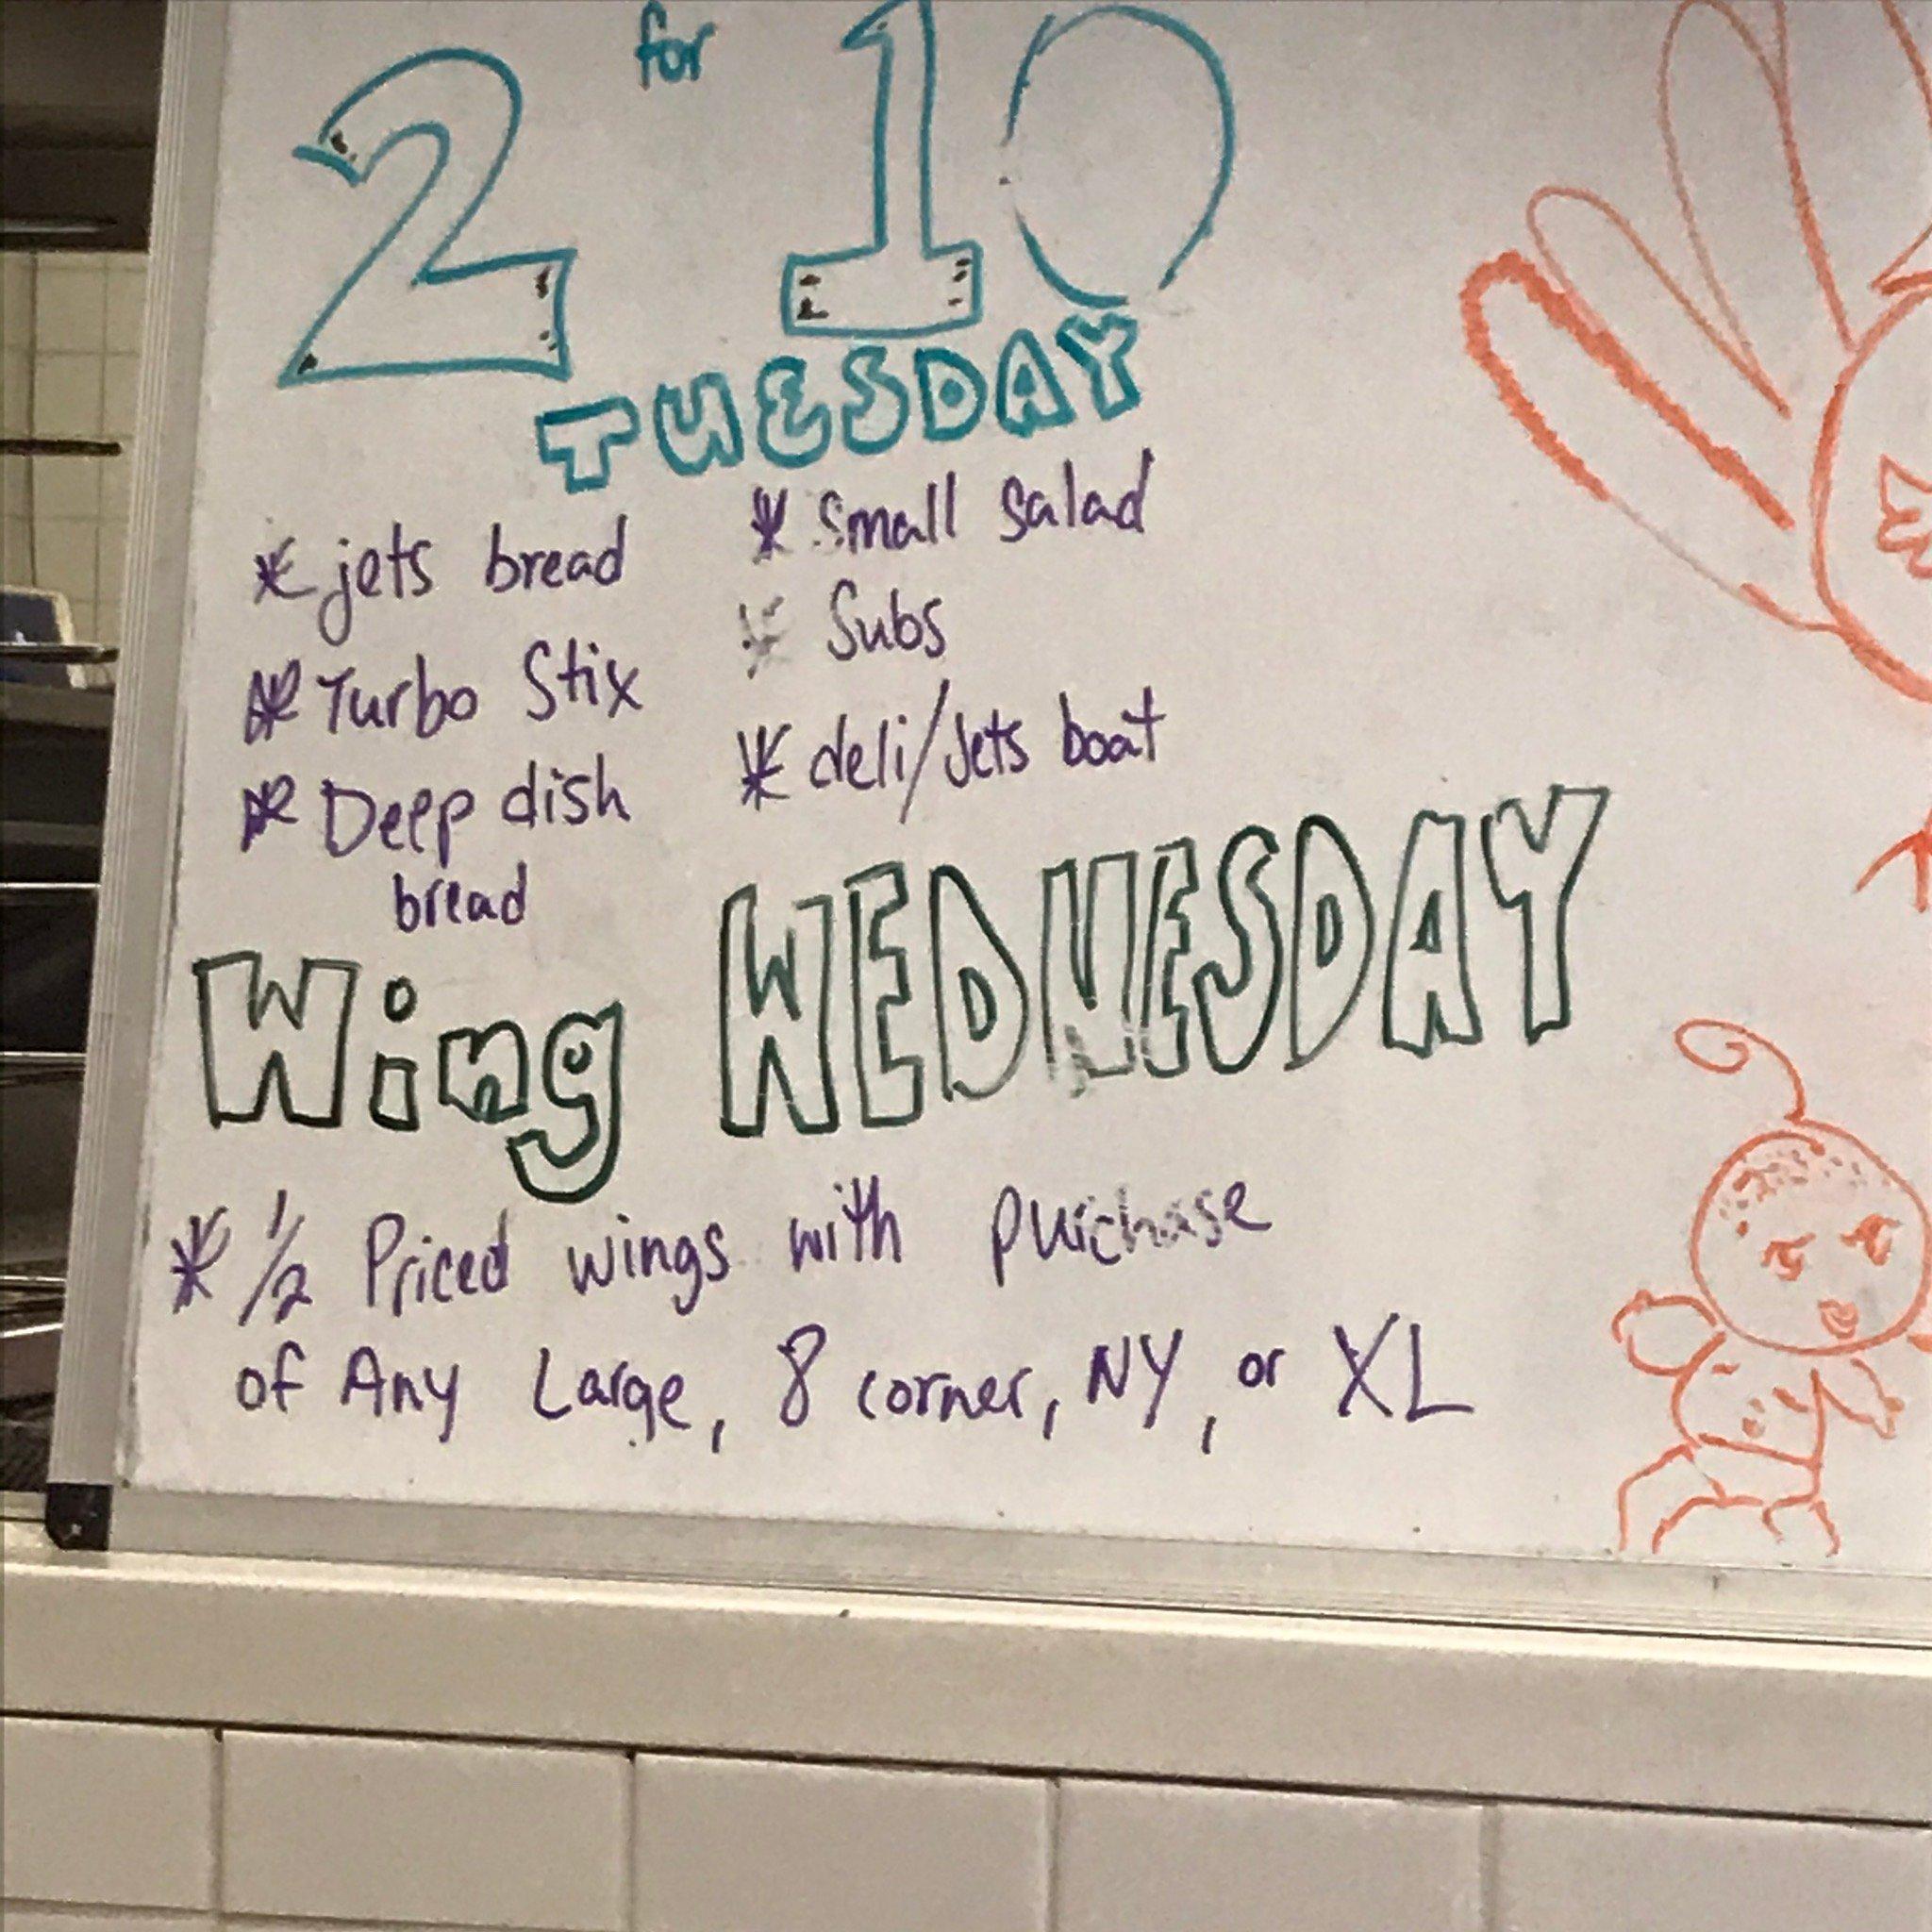 2 for 10
TUESDAY
* jets bread
* Turbo Stix
* Deep dish
bread
* Small salad
* Subs
* deli/Jets boat
Wing WEDNESDAY
* 1/2 Priced wings with purchase
of Any Large, 8 corner, NY, or XL